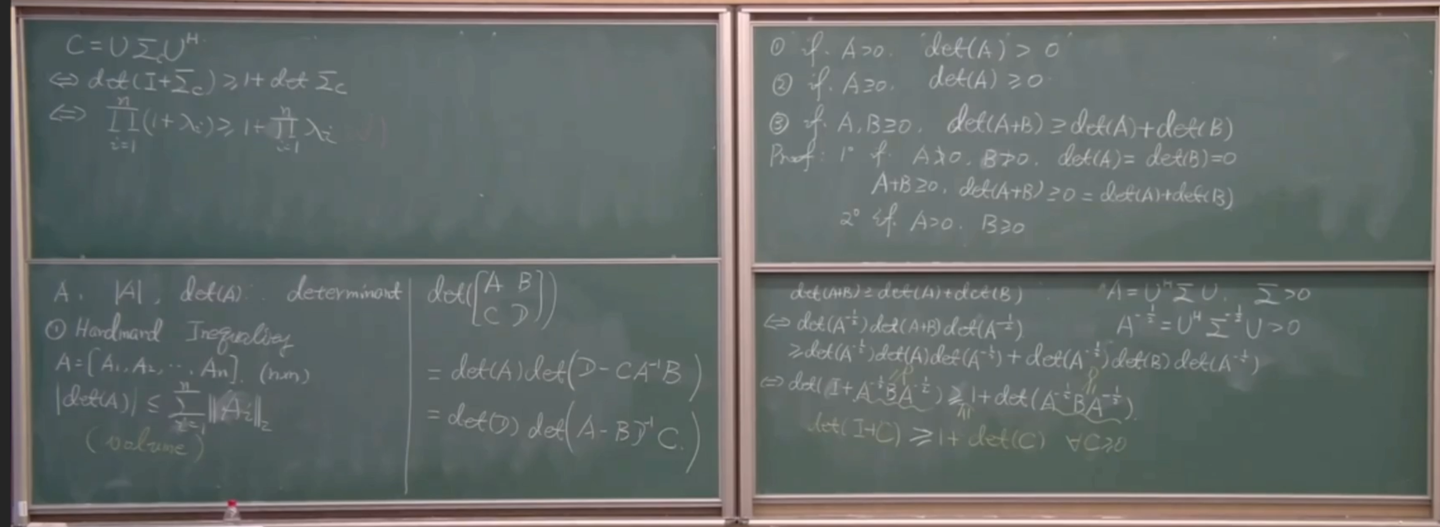 C = UΣ_cU^H
⇔ det(I+Σ_c) ≥ 1+ det Σ_c
⇔ ∏_{i=1}^{n}(1+λ_i) ≥ 1+∏_{i=1}^{n} λ_i (√)
A. |A|, det(A). determinant
① Hardmand Inequality
A=[A_1, A_2, ..., A_n]. (n×n)
|det(A)| ≤ ∑_{i=1}^{n} ||A_i||_2
(volume)
det([A B
C D])
= det(A)det(D-CA^{-1}B)
= det(D) det(A-BD^{-1}C.)
① if. A>0. det(A) > 0
② if. A≥0. det(A) ≥ 0
③ if. A,B≥0. det(A+B) ≥ det(A)+det(B)
Proof: 1° if. A≯0. B≯0. det(A)= det(B)=0
A+B≥0. det(A+B) ≥0 = det(A)+det(B)
2° if. A>0. B≥0
det(A+B) ≥ det(A)+det(B) A=U^HΣU. Σ>0
⇔ det(A^{-1/2})det(A+B)det(A^{-1/2}) A^{-1/2}=U^HΣ^{-1/2}U>0
≥det(A^{-1/2})det(A)det(A^{-1/2}) + det(A^{-1/2})det(B)det(A^{-1/2})
⇔ det(I+A^{-1/2}BA^{-1/2}) ≥ 1+det(A^{-1/2}BA^{-1/2}).
det(I+C) ≥ 1+ det(C) ∀C≥0